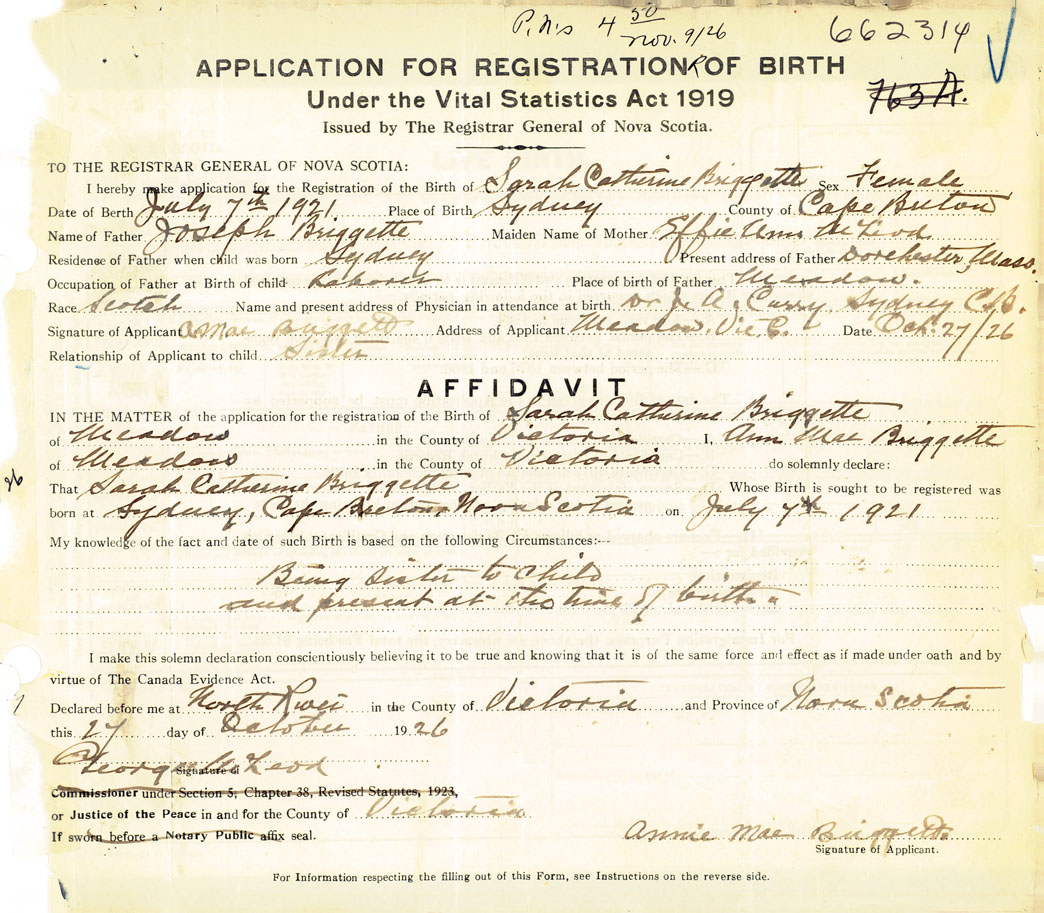 P.N.s 4 50
Nov. 9/26
662314
APPLICATION FOR REGISTRATION OF BIRTH
763 A.
Under the Vital Statistics Act 1919
Issued by The Registrar General of Nova Scotia.
TO THE REGISTRAR GENERAL OF NOVA SCOTIA:
I hereby make application for the Registration of the Birth of Sarah Catherine Briggette Sex Female
Date of Berth July 7th 1921. Place of Birth Sydney County of Cape Breton
Name of Father Joseph Briggette Maiden Name of Mother Effie Ann McLeod
Residense of Father when child was born Sydney Present address of Father Dorchester, Mass.
Occupation of Father at Birth of child Laborer Place of birth of Father Meadow.
Race Scotch Name and present address of Physician in attendance at birth Dr. J. A. Curry, Sydney C.B.
Signature of Applicant A Mae Briggett Address of Applicant Meadow, Vic C. Date Oct. 27/26
Relationship of Applicant to child Sister
AFFIDAVIT
IN THE MATTER of the application for the registration of the Birth of Sarah Catherine Briggette
of Meadow in the County of Victoria I, Ann Mae Briggette
of Meadow in the County of Victoria do solemnly declare:
26
That Sarah Catherine Briggette Whose Birth is sought to be registered was
born at Sydney, Cape Breton, Nova Scotia on July 7th 1921
My knowledge of the fact and date of such Birth is based on the following Circumstances:--
Being sister to child
and present at the time of birth.
I make this solemn declaration conscientiously believing it to be true and knowing that it is of the same force and effect as if made under oath and by
virtue of The Canada Evidence Act.
Declared before me at North River in the County of Victoria and Province of Nova Scotia
this 27 day of October 1926
George McLeod
Signature of
Commissioner under Section 5, Chapter 38, Revised Statutes, 1923,
or Justice of the Peace in and for the County of Victoria
If sworn before a Notary Public affix seal.
Annie Mae Briggett
Signature of Applicant.
For Information respecting the filling out of this Form, see Instructions on the reverse side.